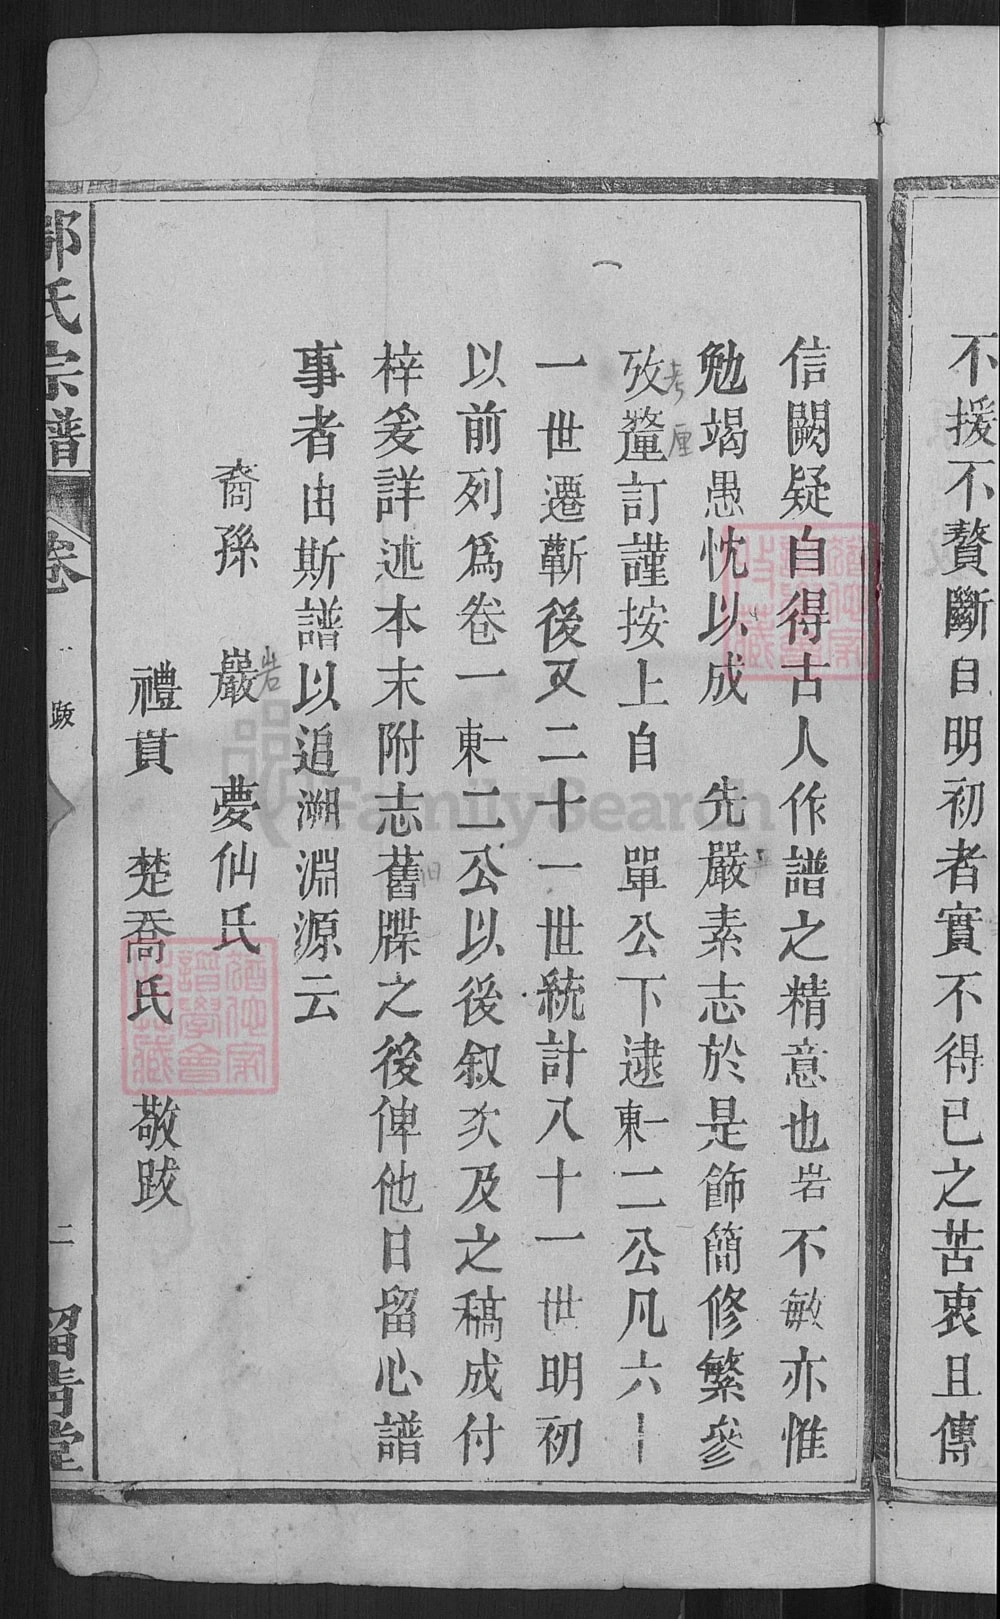 不援不贅斷自明初者實不得已之苦衷且傳
信闕疑自得古人作譜之精意也岩不敏亦惟
勉竭愚忱以成　先嚴素志於是飾簡修繁參
攷釐訂謹按上自　單公下逮東一二公凡六十
一世遷蘄後又二十一世統計八十一世明初
以前列為卷一東一二公以後叙次及之稿成付
梓爰詳述本末附志舊牒之後俾他日留心譜
事者由斯譜以追溯淵源云
裔孫　巖　夢仙氏
禮貫　楚喬氏　敬跋
考
厘
岩
旧
氏宗譜
卷一
跋
二
留青堂
FamilySearch